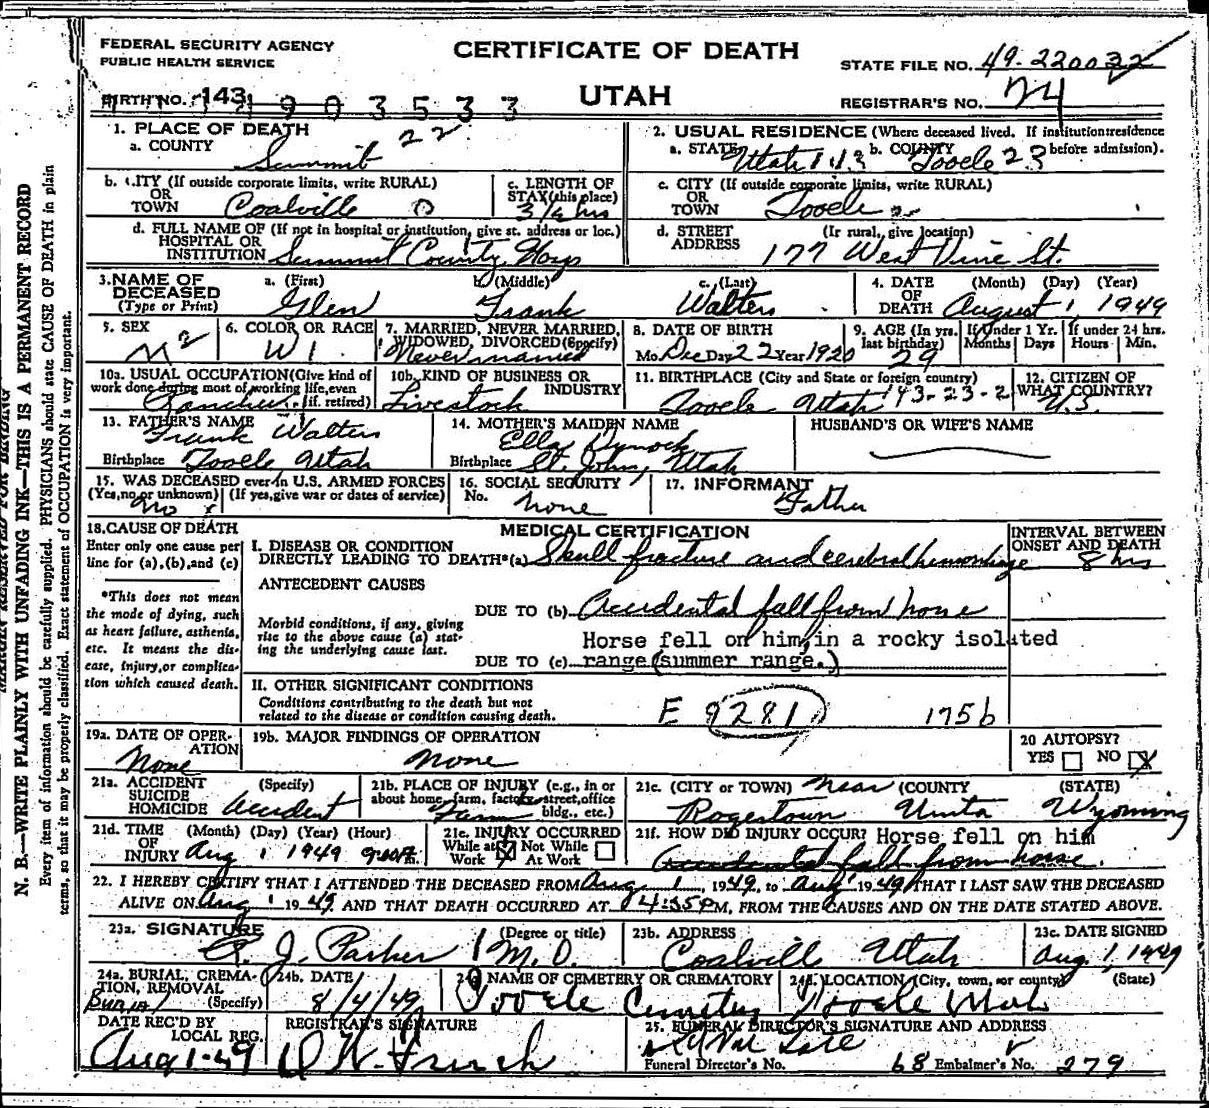 FEDERAL SECURITY AGENCY
PUBLIC HEALTH SERVICE
CERTIFICATE OF DEATH
UTAH
STATE FILE NO. 49-220032
REGISTRAR'S NO. 74
BIRTH NO. 143
1 9 0 3 5 3 3
1. PLACE OF DEATH 22
a. COUNTY Summit
2. USUAL RESIDENCE (Where deceased lived. If institution: residence before admission).
a. STATE Utah 143 b. COUNTY Tooele 23
b. CITY (If outside corporate limits, write RURAL)
OR
TOWN Coalville 0
c. LENGTH OF
STAY (this place)
3/4 hrs
c. CITY (If outside corporate limits, write RURAL)
OR
TOWN Tooele
d. FULL NAME OF (If not in hospital or institution, give st. address or loc.)
HOSPITAL OR
INSTITUTION Summit County Hosp
d. STREET (If rural, give location)
ADDRESS 177 West Vine St.
3. NAME OF DECEASED
(Type or Print)
a. (First) Glen
b. (Middle) Frank
c. (Last) Walters
4. DATE OF DEATH (Month) (Day) (Year)
August 1, 1949
5. SEX
M 2
6. COLOR OR RACE
W 1
7. MARRIED, NEVER MARRIED, WIDOWED, DIVORCED (Specify)
Never married
8. DATE OF BIRTH
Mo. Dec Day 22 Year 1920
9. AGE (In yrs. last birthday)
29
If Under 1 Yr.
Months Days
If under 24 hrs.
Hours Min.
10a. USUAL OCCUPATION (Give kind of work done during most of working life, even if retired)
Rancher
10b. KIND OF BUSINESS OR INDUSTRY
Livestock
11. BIRTHPLACE (City and State or foreign country)
Tooele Utah 143-23-2
12. CITIZEN OF WHAT COUNTRY?
U.S.
13. FATHER'S NAME
Frank Walters
Birthplace Tooele Utah
14. MOTHER'S MAIDEN NAME
Ella
Birthplace St. John, Utah
HUSBAND'S OR WIFE'S NAME
15. WAS DECEASED ever in U.S. ARMED FORCES
(Yes, no or unknown) (If yes, give war or dates of service)
No x
16. SOCIAL SECURITY
No. None
17. INFORMANT
Father
18. CAUSE OF DEATH
Enter only one cause per line for (a), (b), and (c)
*This does not mean the mode of dying, such as heart failure, asthenia, etc. It means the disease, injury, or complication which caused death.
MEDICAL CERTIFICATION
INTERVAL BETWEEN ONSET AND DEATH
I. DISEASE OR CONDITION
DIRECTLY LEADING TO DEATH*(a) Skull fracture and cerebral hemorrhage 8 hrs
ANTECEDENT CAUSES
Morbid conditions, if any, giving rise to the above cause (a) stating the underlying cause last.
DUE TO (b) Accidental fall from horse
Horse fell on him, in a rocky isolated
DUE TO (c) range (summer range.)
II. OTHER SIGNIFICANT CONDITIONS
Conditions contributing to the death but not related to the disease or condition causing death.
E 9281 175b
19a. DATE OF OPERATION
None
19b. MAJOR FINDINGS OF OPERATION
None
20 AUTOPSY?
YES NO X
21a. ACCIDENT SUICIDE HOMICIDE (Specify)
Accident
21b. PLACE OF INJURY (e.g., in or about home, farm, factory, street, office bldg., etc.)
Farm
21c. (CITY OR TOWN) near (COUNTY) (STATE)
Rogestown Uinta Wyoming
21d. TIME OF INJURY (Month) (Day) (Year) (Hour)
Aug 1 1949 9:00 A.m.
21e. INJURY OCCURRED
While at Work X Not While At Work
21f. HOW DID INJURY OCCUR? Horse fell on him
Accidental fall from horse.
22. I HEREBY CERTIFY THAT I ATTENDED THE DECEASED FROM Aug 1, 1949, to Aug 1 1949 THAT I LAST SAW THE DECEASED
ALIVE ON Aug 1 1949 AND THAT DEATH OCCURRED AT 4:35 PM, FROM THE CAUSES AND ON THE DATE STATED ABOVE.
23a. SIGNATURE (Degree or title)
J. Parker M.D.
23b. ADDRESS
Coalville Utah
23c. DATE SIGNED
Aug 1, 1949
24a. BURIAL, CREMATION, REMOVAL (Specify)
Burial
24b. DATE
8/4/49
24c. NAME OF CEMETERY OR CREMATORY
Tooele Cemetery
24d. LOCATION (City, town, or county) (State)
Tooele Utah
DATE REC'D BY LOCAL REG.
Aug 1-49
REGISTRAR'S SIGNATURE
25. FUNERAL DIRECTOR'S SIGNATURE AND ADDRESS
Funeral Director's No. 68 Embalmer's No. 279
N. B.—WRITE PLAINLY WITH UNFADING INK—THIS IS A PERMANENT RECORD
Every item of information should be carefully supplied. PHYSICIANS should state CAUSE OF DEATH in plain
terms, so that it may be properly classified. Exact statement of OCCUPATION is very important.
MARGIN RESERVED FOR BINDING